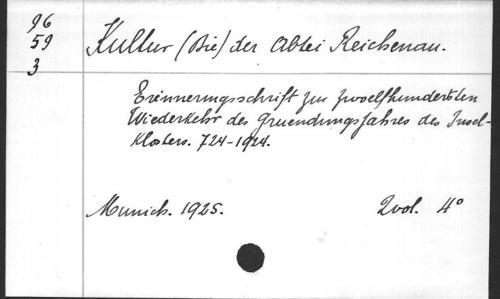 96
59
3
Kultur (Die) der Abtei Reichenau.
Erinnerungsschrift zur zwoelfhundertsten
Wiederkehr des Gruendungsjahres des Insel-
klosters. 724-1924.
Munich. 1925. 2vol. 4°